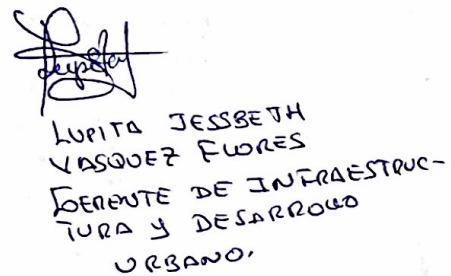 Lupita
LUPITA JESSBETH
VASQUEZ FLORES
GERENTE DE INFRAESTRUC-
TURA Y DESARROLLO
URBANO.